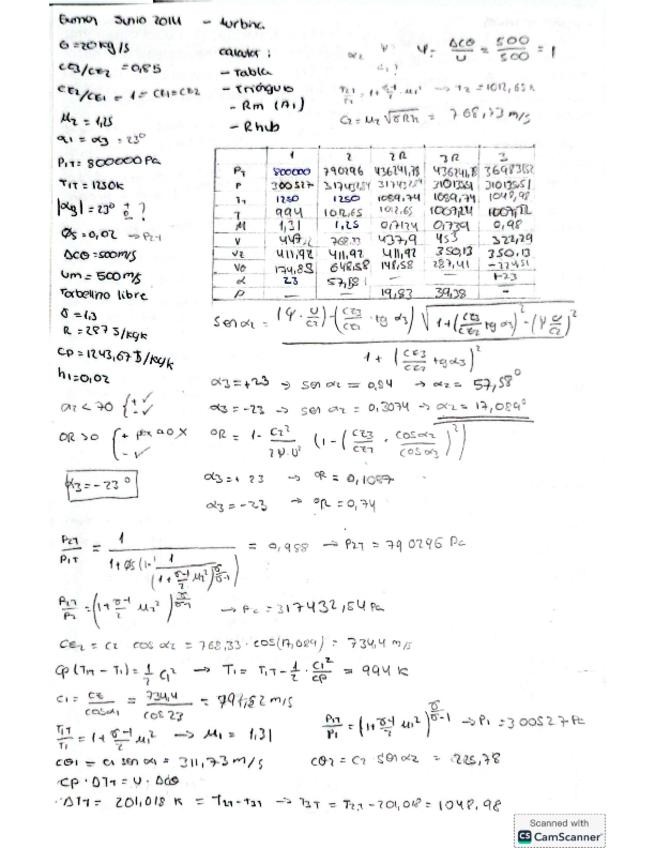 Examen Junio 2014 - turbina
G = 20 kg/s
Cz3/Cz2 = 0,85
Cz2/Cz1 = 1 = Cz1 = Cz2
M2 = 1,25
α1 = α3 = 23°
P1T = 800000 Pa
T1T = 1250 K
|α3| = 23° ± ?
Øs = 0,02 → P2T
ΔCθ = 500 m/s
Um = 500 m/s
Torbelino libre
γ = 1,3
R = 287 J/kgK
CP = 1243,67 J/kgK
h1 = 0,02
α2 < 70 { + ✓ - ✓
OR > 0 { + por a 0 X - ✓
α3 = -23°
calcular :
- Tabla
- Triángulo
- Rm (A1)
- Rhub
Ψ = ΔCθ/U = 500/500 = 1
→ T2 = 1012,65 K
C2 = M2 √γRT2 = 768,33 m/s
1 2 2R 3R 3
PT 800000 790296 436241,78 436241,8
P 300527
TT 1250 1250 1089,74 1089,74 1048,98
T 994 1012,65 1012,65
M 1,31 1,25 0,7124 0,739 0,98
V 768,33 437,9 453 322,29
Vz 411,92 411,92 411,92 350,13 350,13
Vθ 174,85 648,58 148,58 287,41
α 23 57,58 — — +23
β — — 19,83 39,38 —
sen α2 = ((Ψ · U/C2) - (Cz3/Cz2 · tg α3) √(1 + (Cz3/Cz2 tg α3)² - (Ψ U/C2)²)) / (1 + (Cz3/Cz2 tg α3)²)
α3 = +23 → sen α2 = 0,84 → α2 = 57,58°
α3 = -23 → sen α2 = 0,3074 → α2 = 17,089°
OR = 1 - C2²/2Ψ·U² (1 - (Cz3/Cz2 · cos α2/cos α3)²)
α3 = + 23 → OR = 0,1087
α3 = -23 → OR = 0,74
P2T/P1T = 1/(1 + Øs (1 - 1/(1 + γ-1/2 M2²)^γ/γ-1)) = 0,988 → P2T = 790296 Pa
P2T/P2 = (1 + γ-1/2 M2²)^γ/γ-1 → P2 = 317432,54 Pa
Cz2 = C2 cos α2 = 768,33 · cos(17,089) = 734,4 m/s
Cp (T1T - T1) = 1/2 C1² → T1 = T1T - 1/2 · C1²/CP = 994 K
C1 = Cz/cos α1 = 734,4/cos 23 = 797,82 m/s
T1T/T1 = 1 + γ-1/2 M1² → M1 = 1,31
P1T/P1 = (1 + γ-1/2 M1²)^γ/γ-1 → P1 = 300527 Pa
Cθ1 = C1 sen α1 = 311,73 m/s
Cθ2 = C2 sen α2 = 225,78
CP · ΔTT = U · ΔCθ
ΔTT = 201,018 K = T2T - T3T → T3T = T2T - 201,018 = 1048,98
Scanned with
CS CamScanner